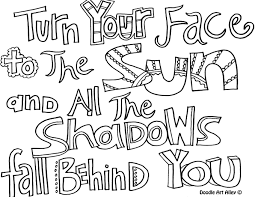 Turn Your Face
to The Sun
and All The
Shadows
fall Behind You
Doodle Art Alley ©